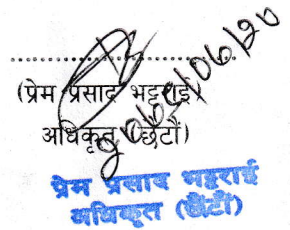 (प्रेम प्रसाद भट्टराई)
अधिकृत (छैटौं)
प्रेम प्रसाद भट्टराई
अधिकृत (छैटौं)